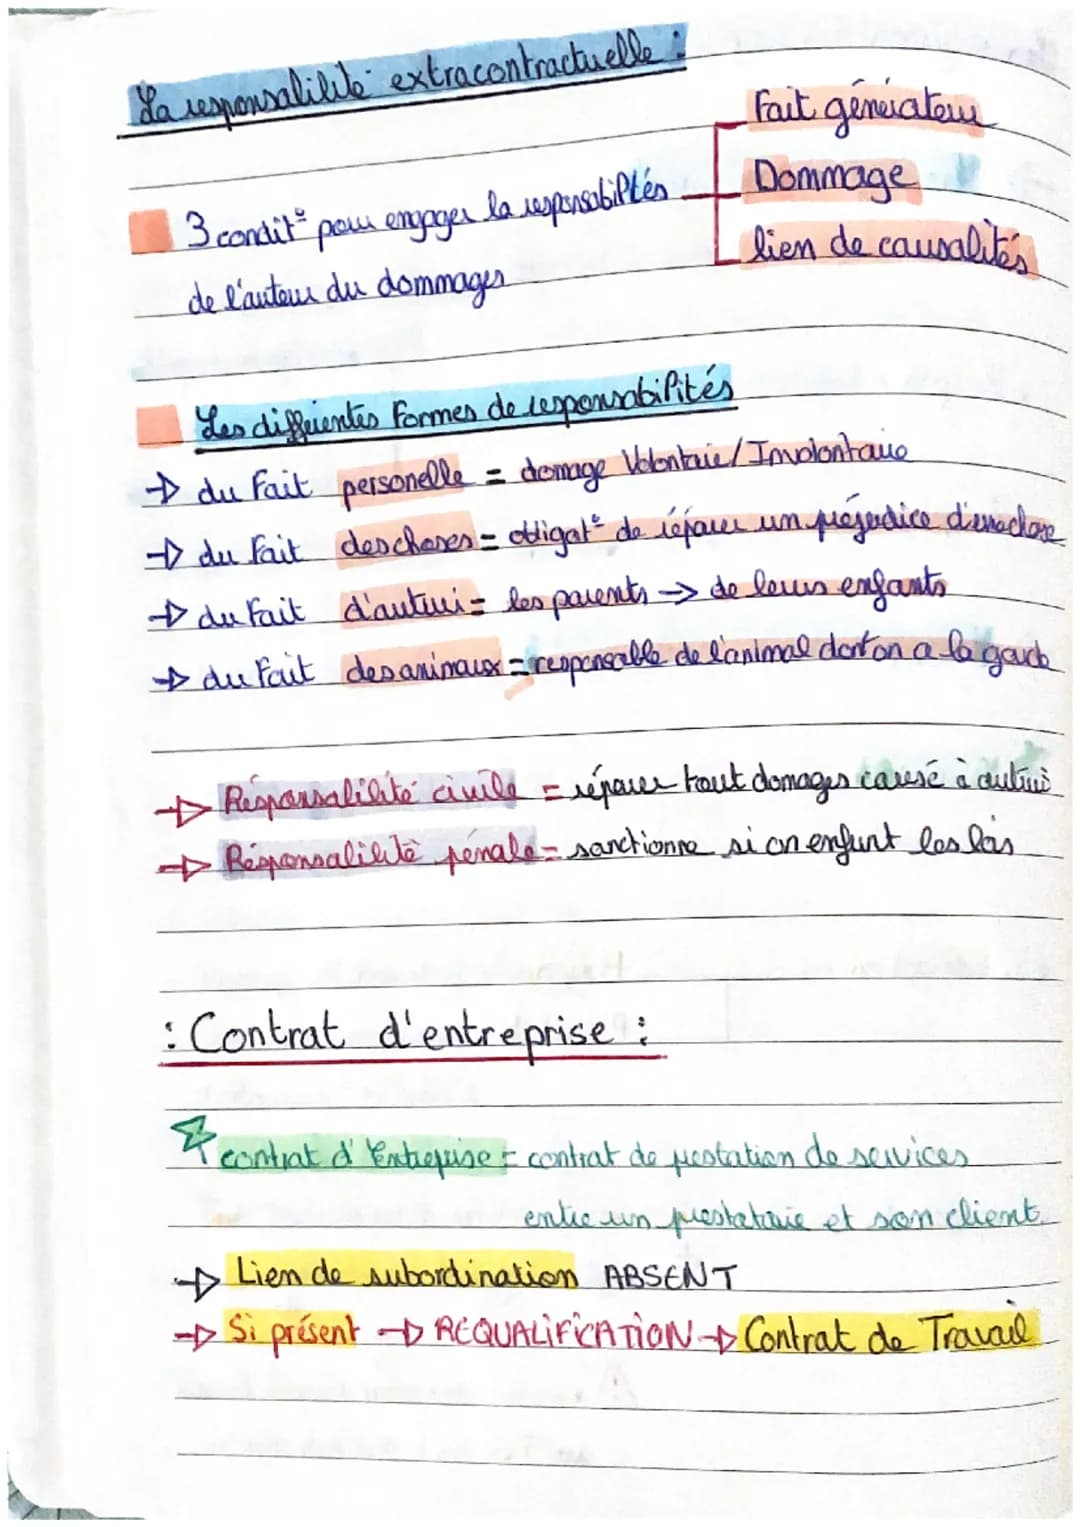 La responsalilité extracontractuelle :
Fait générateur
Dommage
3 condit° pour engager la responsabiltés
lien de causalités
de l'auteur du dommages
Les différentes Formes de responsabilités
→ du Fait personelle = domage Volontaire/Involontaire
→ du Fait des choses = obligat° de réparer un préjudice d'une chose
→ du Fait d'autrui = les parents → de leurs enfants
→ du Fait des animaux = responsable de l'animal dont on a la garde
→ Résponsalilité civile = réparer tout domages causé à autrui
→ Résponsalilité pénale = sanctionne si on enfunt les lois
: Contrat d'entreprise :
contrat d'Entreprise = contrat de prestation de services
entre un prestataire et son client.
→ Lien de subordination ABSENT
→ Si présent → REQUALIFICATION → Contrat de Travail